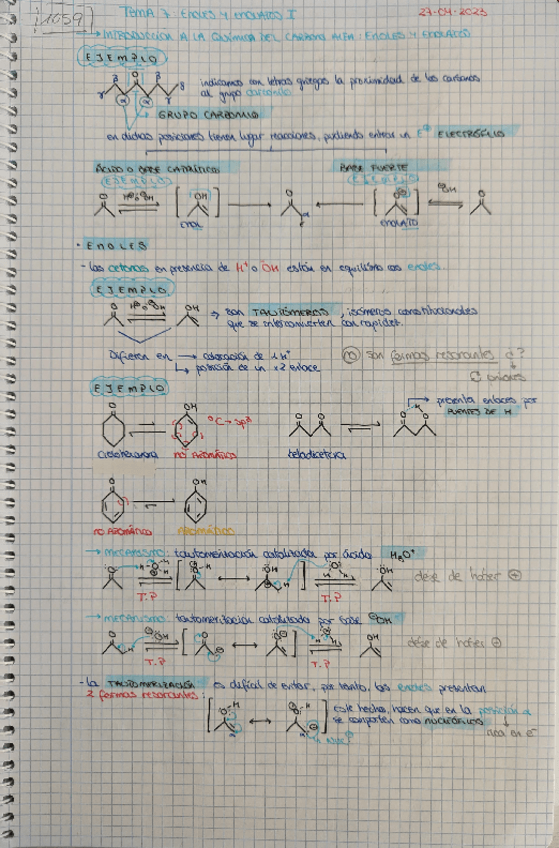 1059
TEMA 7: ENOLES Y ENOLATOS I 27-04-2023
→ INTRODUCCIÓN A LA QUÍMICA DEL CARBONO ALFA: ENOLES Y ENOLATOS
EJEMPLO
indicamos con letras griegas la proximidad de los carbonos
al grupo carbonilo
GRUPO CARBONILO
en dichas posiciones tienen lugar reacciones, pudiendo entrar un E⊕ ELECTRÓFILO
ÁCIDO O BASE CATALÍTICO BASE FUERTE
EJEMPLO EJEMPLO
ENOL ENOLATO
• ENOLES
- Las cetonas en presencia de H⁺ o OH están en equilibrio con enoles.
EJEMPLO
→ son TAUTÓMEROS, isómeros constitucionales
que se interconvierten con rapidez.
Difieren en → colocación de 1 H⁺
↳ posición de un x2 enlace
NO son formas resonantes
EJEMPLO
→ presenta enlaces por
PUENTES DE H
ciclohexanona NO AROMÁTICO
NO AROMÁTICO AROMÁTICO
→ MECANISMO: tautomerización catalizada por ácido H₃O⁺
T.P T.P
debe de haber ⊕
→ MECANISMO: tautomerización catalizada por base ⊖OH
T.P T.P
debe de haber ⊖
- La TAUTOMERIZACIÓN es difícil de evitar, por tanto, los enoles presentan
2 formas resonantes:
este hecho, hacen que en la posición α
se comporten como nucleófilos
rica en e⁻